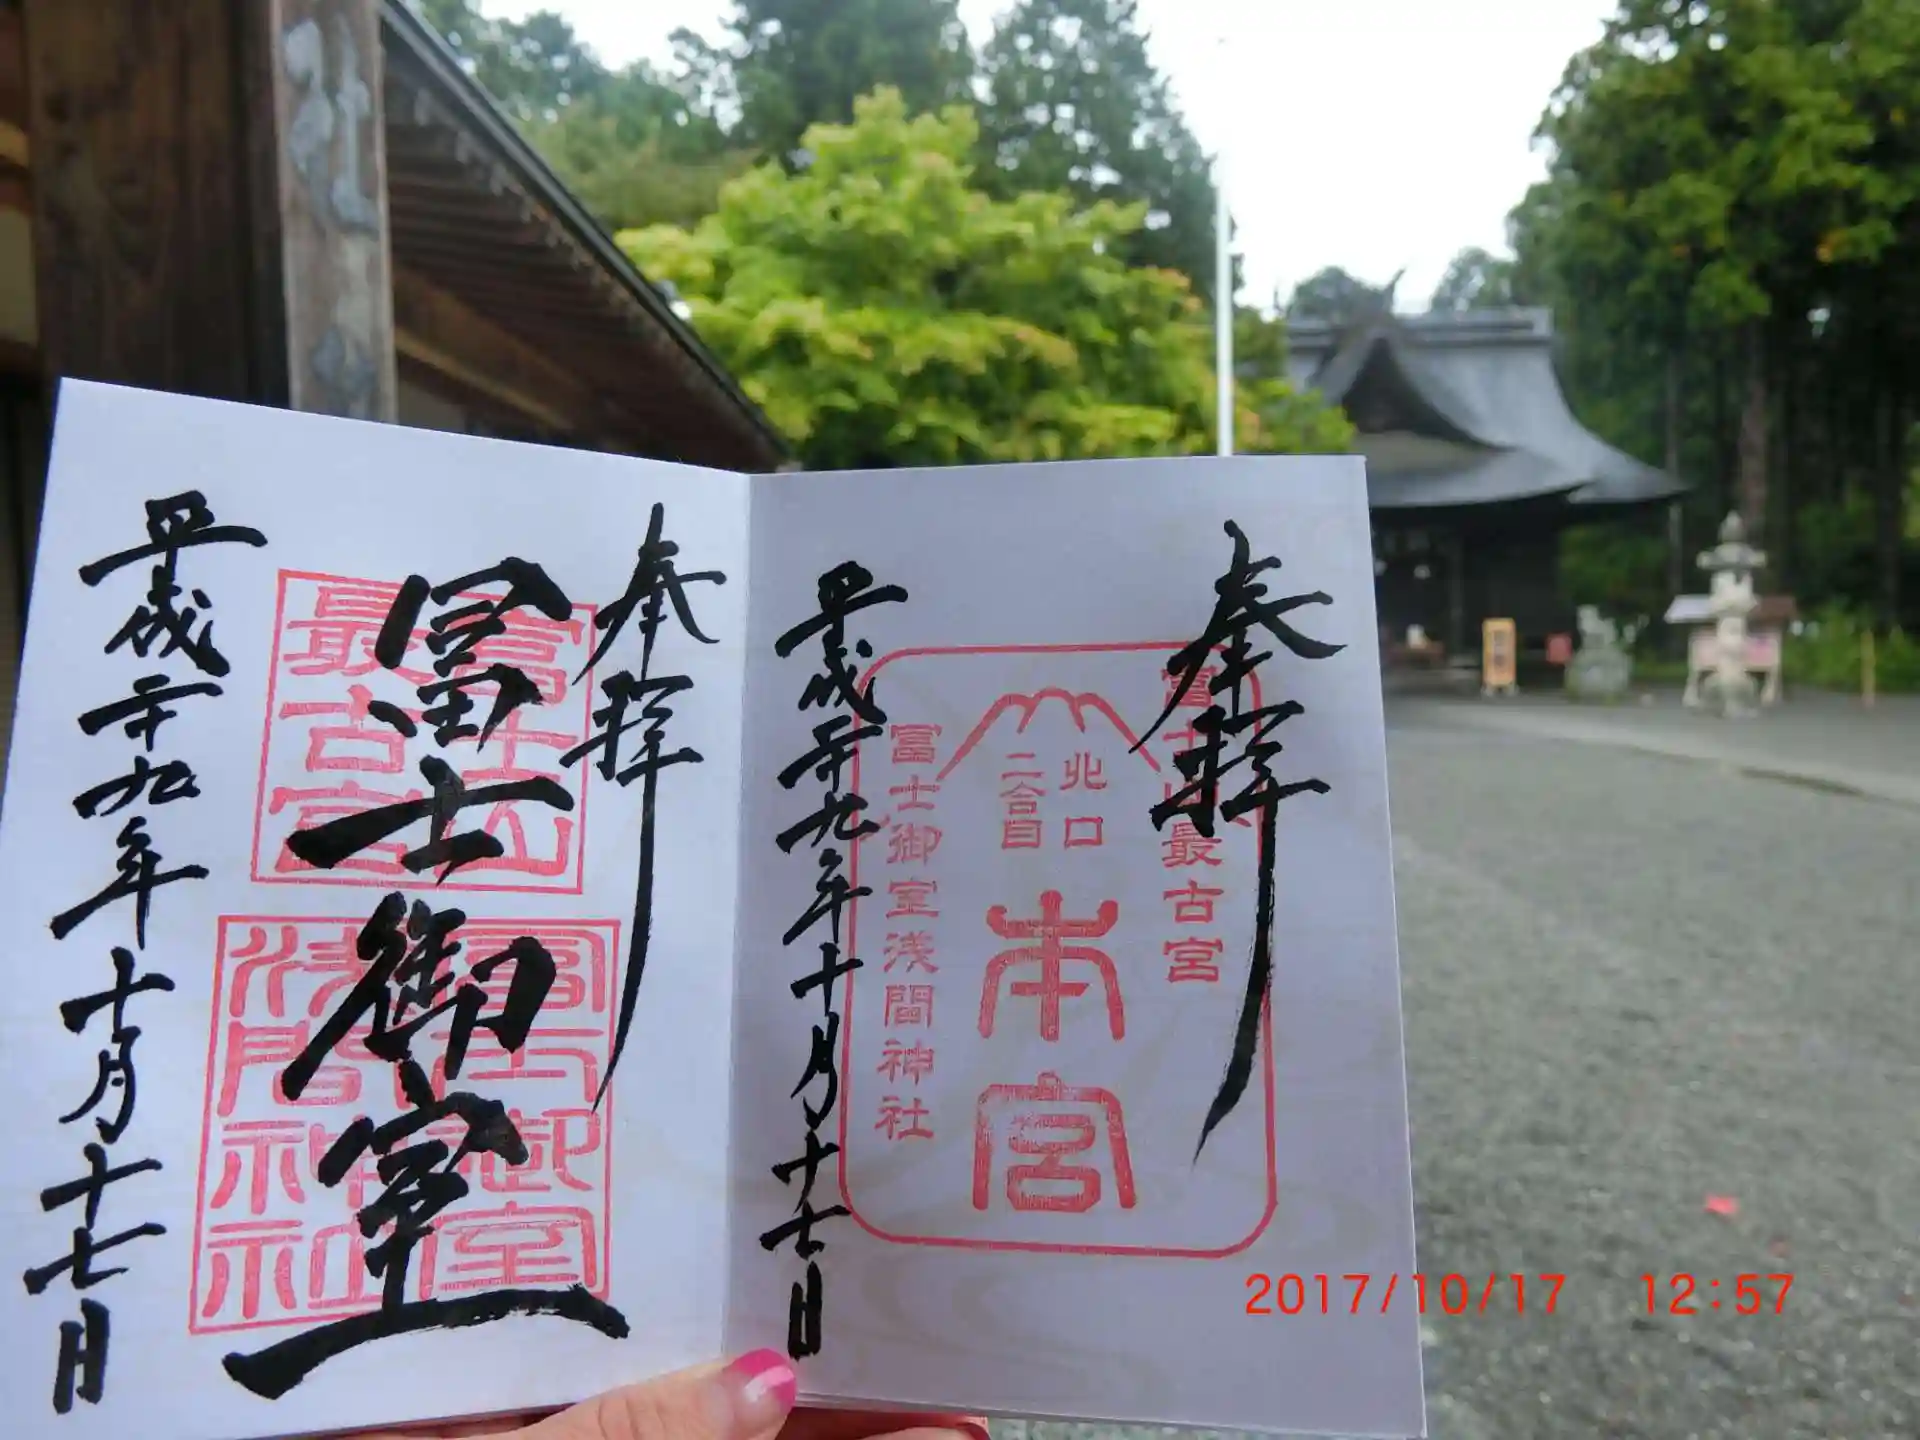 奉拝
富士山最古宮
北口
二合目
本宮
富士御室浅間神社
平成二十九年十月十七日
奉拝
富士山
最古宮
富士御室
富士御室
浅間神社
平成二十九年十月十七日
2017/10/17 12:57